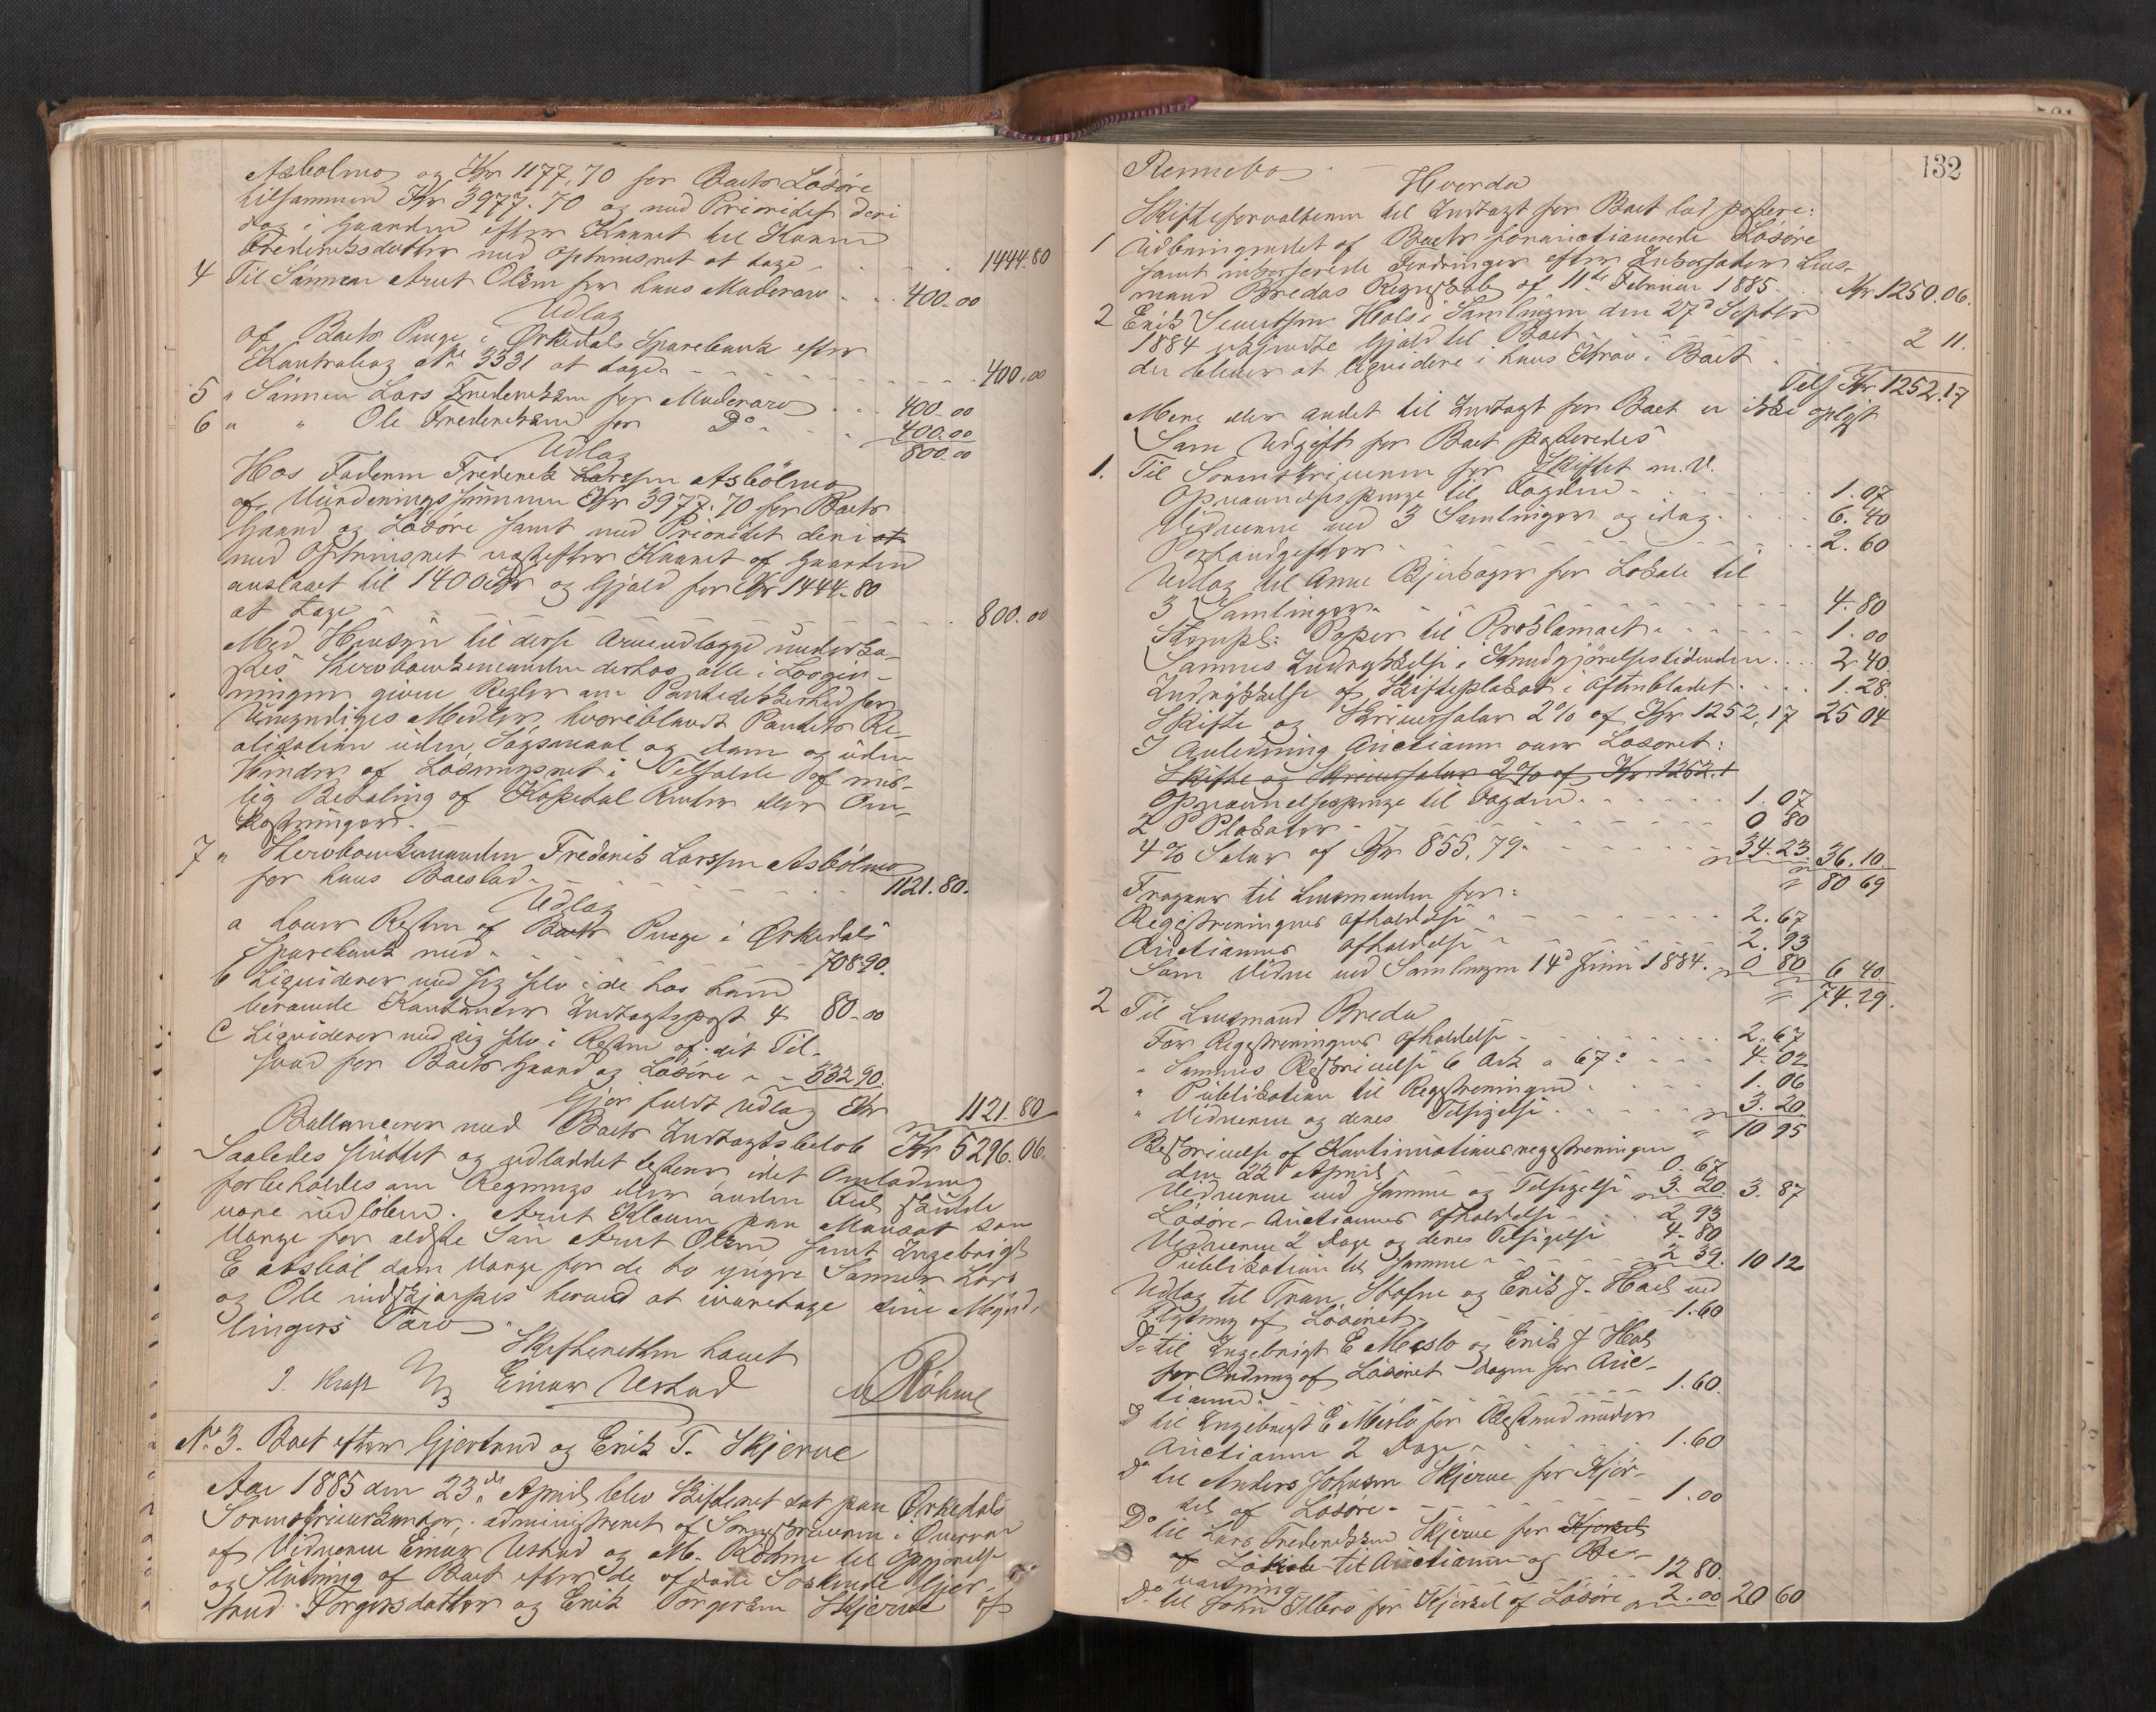 Asbølmo og Kr 1177,70 for Boets Løsøre
tilsammen Kr 3977.70 og med Prioritet deri
dog i Gaarden efter Kaaret til Karen
Frederiksdatter med Opkrævsret at tage 1444.80
4 Til Sønnen Arnt Olsen for hans Mødrearv 400.00
Udlag
af Boets Penge i Ørkedals Sparebank efter
Kontrabog No 3331 at tage 400.00
5 " Sønnen Lars Frederiksen for Mødrearv 400.00
6 " " Ole Frederiksen for Do 400.00
Udlag 800.00
Hos Faderen Frederik Larssen Asbølmo
af Vurderingssummen Kr 3977.70 for Boets
Gaard og Løsøre samt med Prioritet deri
med næstefter Kaaret af Gaarden
anslaaet til 1400 Kr og Gjæld for Kr 1444.80
at tage 800.00
Med Hensyn til disse Arveudlægge underka-
stes Skerobankemanden derhos alle i Lovgiv-
ningen givne Regler om Pantesikkerhed for
Umyndiges Midler, hvoriblandt Pantets Re-
alisation uden Søgsmaal og Dom og uden
Hinder af Løsningsret i Tilfælde af
lig Betaling af Kapital Renter eller Om-
kostninger.
7 " Frederik Larssen Asbølmo
for hans Boeslod 1121.80.
Udlag
a Resten af Boets Penge i Ørkedals
Sparebank med 708.90.
b Liquiderer med sig selv i de hos ham
beroende Kontanter Indtægtspost 4 80.00
c Liquiderer med sig selv i Resten af sit Til-
svar for Boets Gaard og Løsøre 332 90.
Gjør fuldt Udlag Kr 1121.80
Ballancerer med Boets Indtægtsbeløb Kr 5296.06.
Saaledes sluttet og udloddet testeres idet Omlodning
forbeholdes om Regnings eller anden Feil skulde
være indløben. Arnt Kleum paa Monset som
Værge for ældste Søn Arnt Olsen samt Ingebrigt
E Asbøl som Værge for de to yngre Sønner Lars
og Ole indskjærpes herved at ivaretage sine Mynd-
lingers Tarv
Skifteretten hævet
J. Kraft Einar Ustad M Røhme
No 3. Boet efter Gjertrud og Erik T. Skjerve
Aar 1885 den 23de April blev Skifteret sat paa Ørkedals
Sorenskriverkontor, administreret af Sorenskriveren i Overvær
af Vidnerne Einar Ustad og M. Røhme til Opgjørelse
og Slutning af Boet efter de afdøde Søskende Gjer-
trud Torgersdatter og Erik Torgersen Skjerve af
132
Rennebo
Hvorda
Skifteforvalteren til Indtægt for Boet lod postere:
1 Udbringendet af Boets forauctionerede Løsøre
samt inkasserede Fordringer efter Inkassator Lens-
mand Bredas Regnskab af 11te Februar 1885 Kr 1250.06.
2 Erik Sivertsen Hals i Samlingen den 27d Septbr
1884 erkjendte Gjæld til Boet 2 11.
der bliver at liquidere i hans Krav i Boet
Tils Kr 1252.17
Mere eller andet til Indtægt for Boet er ikke oplyst
Som Udgift for Boet posteredes
1. Til Sorenskriveren for Skiftet m. V.
Opnævnelsespenge til Fogden 1.07
Vidnerne ved 3 Samlinger og idag 6.40
Postudgifter 2.60
Udlag til Anne Bjerkager for Lokale til
3 Samlinger 4.80
Stempl: Papir til Proklamaet 1.00
Sammes Indrykkelse i Kundgjørelsestidenden 2 40
Indrykkelse af Skifteplakat i Aftenbladet 1.28.
Skifte og Skriversalær 2% af Kr 1252,17 25 04
I Anledning Auctionen over Løsøret:
Skifte og Skriversalær 2% af Kr. 1252.1
Opnævnelsespenge til Fogden 1.07
2 P Plakater 0 80
4% Salær af Kr 855,79 34.23. 36.10.
" 80 69
Fragaar til Lensmanden for:
Registreringens Afholdelse 2.67
Auctionens Afholdelse 2.93
Som Vidne ved Samlingen 14d Juni 1884. 0 80 6 40
" 74.29.
2 Til Lensmand Breda
For Registreringens Afholdelse 2.67
" Sammes Beskrivelse 6 Ark a 67 4.02
" Publikation til Registreringen 1.06
" Vidnerne og deres Tilsigelse 3.20.
" 10 95
Beskrivelse af Kontinuationsregistreringen
den 22d April 0.67
Vidnerne ved samme og Tilsigelse 3.20. 3. 87
Løsøre-Auctionens Afholdelse 2 93
Vidnerne 2 Dage og deres Tilsigelse 4.80
Publikation til samme 2 39. 10 12
Udlag til Tron Stafne og Erik J. Hals ved
Flytning af Løsøret 1.60
Do til Ingebrigt E Meslo og Erik J Hals
for Ordning af Løsøret Dagen før Auc-
tionen 1.60.
Do til Ingebrigt E Meslo for Bistand under
Auctionen 2 Dage 1.60
Do til Anders Johnsen Skjerve for Kjør-
sel af Løsøre 1.00
Do til Lars Frederiksen Skjerve for Kjørsel
af Lokale til Auctionen og Be-
værtning 12 80.
Do til John for Kjørsel af Løsøre 2.00 20 60